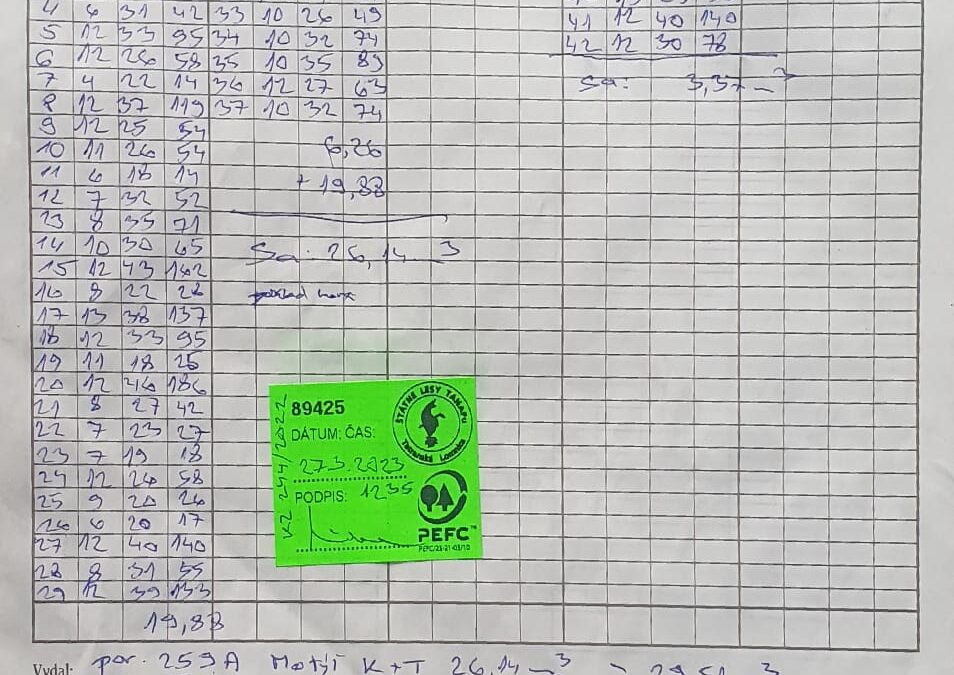 4 6 31 42 33 10 26 49
41 12 40 140
5 12 33 95 34 10 32 74
42 12 30 78
6 12 26 58 35 10 35 89
Sa: 3,37 m3
7 4 22 14 36 12 27 63
8 12 37 119 37 10 32 74
9 12 25 54
10 11 26 54
6,26
11 6 18 14
+ 19,88
12 7 32 52
13 8 35 71
14 10 30 65
Sa: 26,14 m3
15 12 43 162
16 8 22 28
17 13 38 137
18 12 33 95
19 11 18 25
20 12 46 186
21 8 27 42
22 7 23 27
23 7 19 18
24 12 26 58
25 9 20 26
26 6 20 17
27 12 40 140
28 8 31 55
29 12 39 133
19,88
KZ 244/2022
89425
DÁTUM: ČAS:
27.3.2023
PODPIS: 1235
ŠTÁTNE LESY TANAPU
Tatranská Lomnica
PEFC™
PEFC/23-21-03/10
Vydal: por. 259A Motýľ K+T 26,14 m3